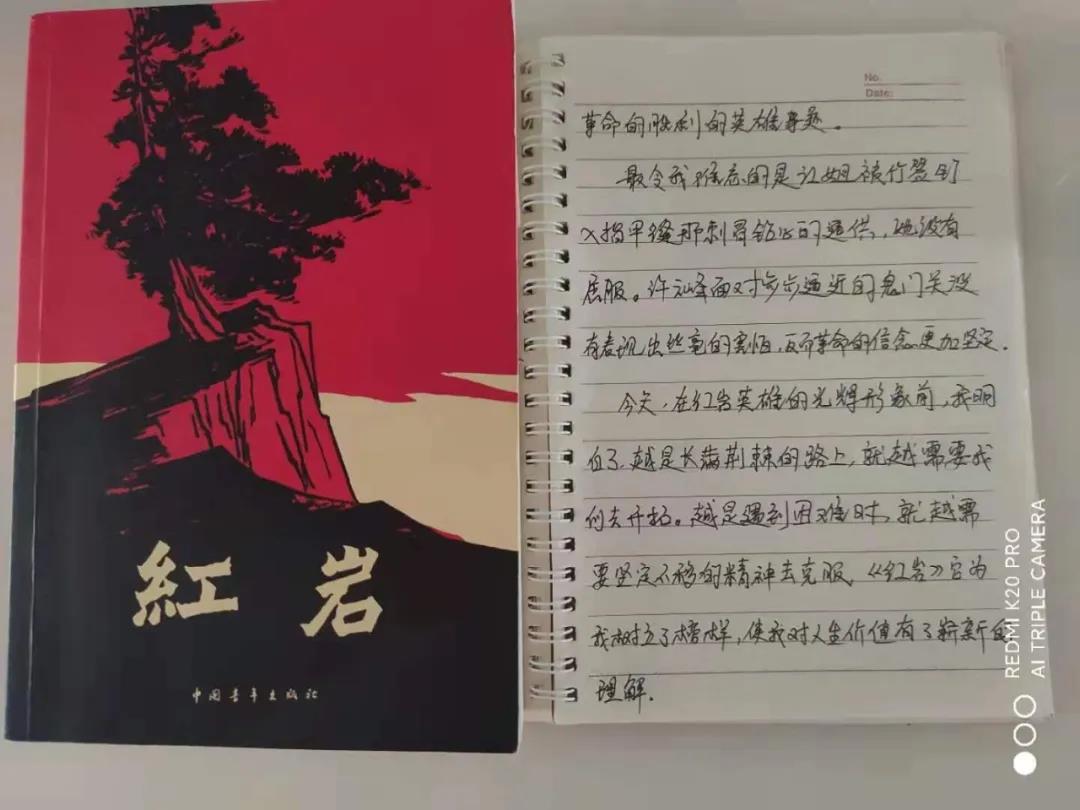 紅岩
中国青年出版社
No.
Date:
革命的胜利的英雄事迹。
最令我难忘的是江姐被竹签钉
入指甲缝那刺骨铭心的逼供,她没有
屈服。许云峰面对步步逼近的鬼门关没
有表现出丝毫的害怕,反而革命的信念更加坚定.
今天,在红岩英雄的光辉形象前,我明
白了,越是长满荆棘的路上,就越需要我
们去开拓。越是遇到困难时,就越需
要坚定不移的精神去克服,《红岩》它为
我树立了榜样,使我对人生价值有了崭新的
理解.
REDMI K20 PRO
AI TRIPLE CAMERA